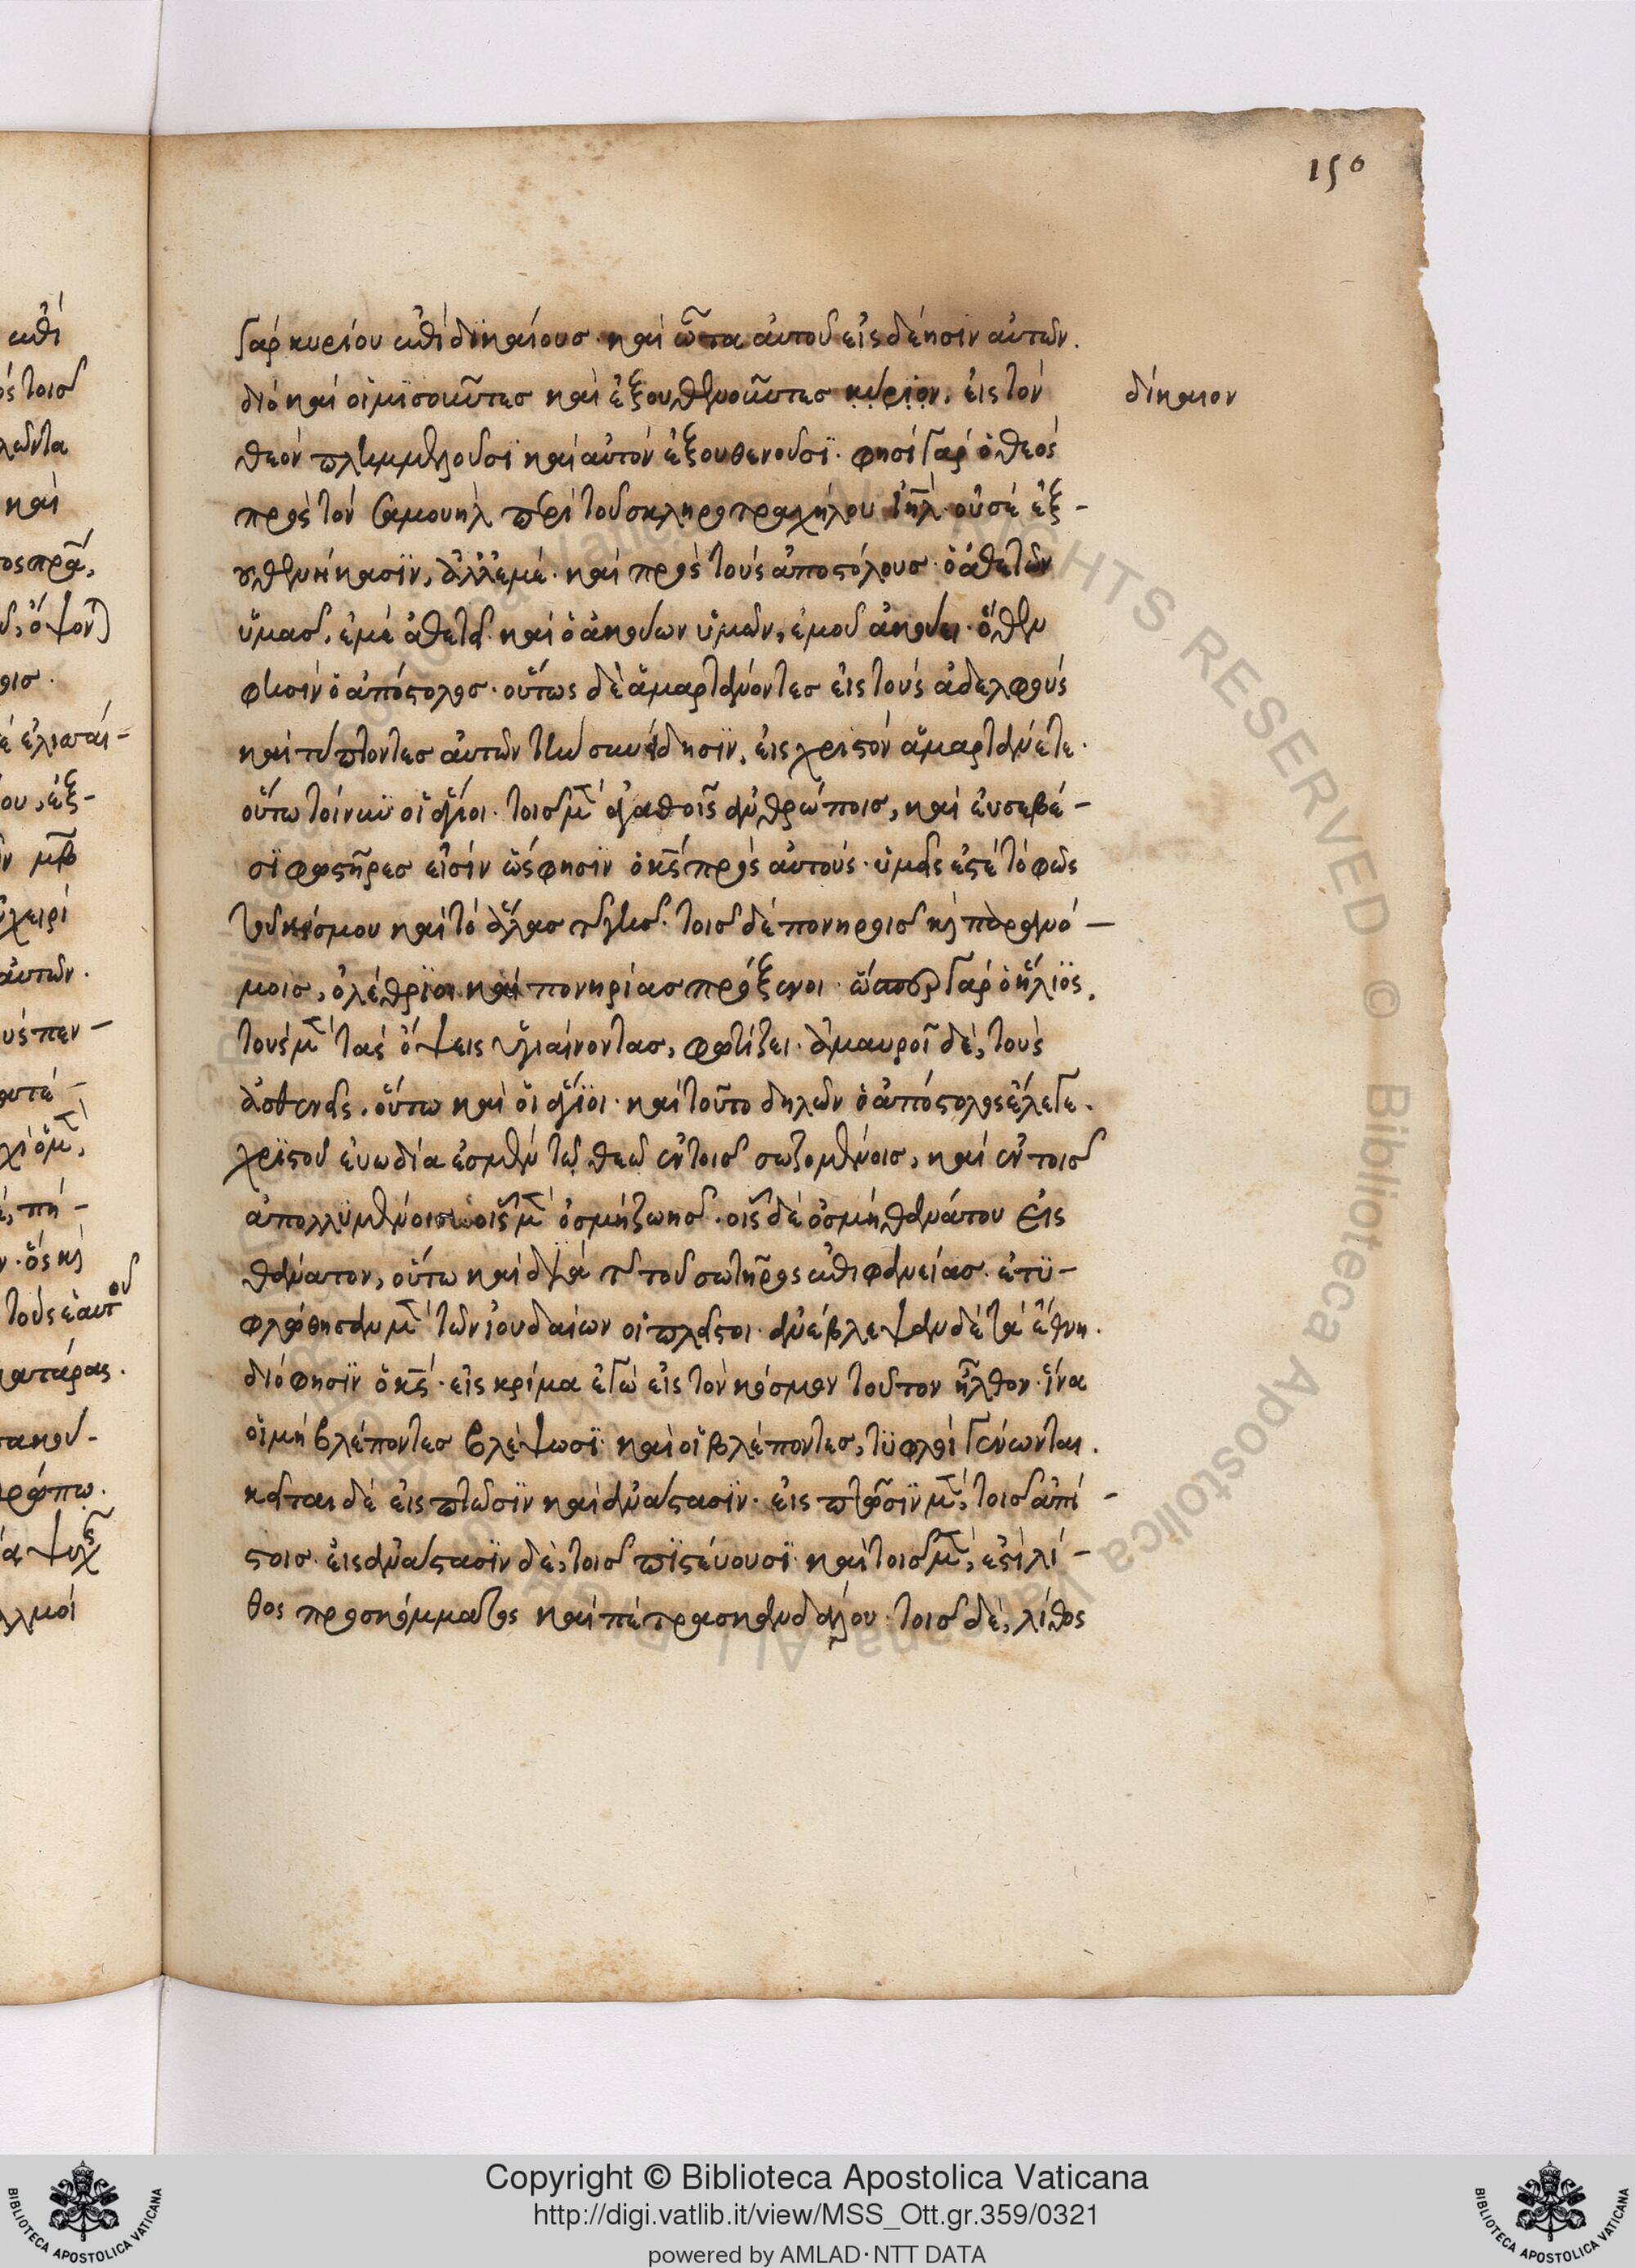 150
γὰρ κυρίου ἐπὶ δικαίους· καὶ ὦτα αὐτοῦ εἰς δέησιν αὐτῶν.
διό καί οἱ μισοῦντες καὶ ἐξουθενοῦντες κύριον, εἰς τὸν
δίκαιον
θεόν πλημμελοῦσϊ καὶ αὐτόν ἐξουθενοῦσϊ· φησί γάρ ὁ θεός
πρός τόν σαμουήλ περὶ τοῦ σκληροτραχήλου ἰηλ· οὐ σέ ἐξ-
ουθενήκασϊν, ἀλλ' ἐμέ· καὶ πρός τούς ἀποστόλους· ὁ ἀθετῶν
ὑμᾶς, ἐμέ ἀθετεῖ· καὶ ὁ ἀκούων ὑμῶν, ἐμοῦ ἀκούει· ὅθεν
φησίν ὁ ἀπόστολος· οὕτως δὲ ἁμαρτάνοντες εἰς τούς ἀδελφούς
καὶ τύπτοντες αὐτῶν τὴν συνείδησϊν, εἰς χριστόν ἁμαρτάνετε·
οὕτω τοίνυν οἱ ἅγιοι· τοῖς μ(ὲν) ἀγαθοῖς ἀνθρώποις, καὶ εὐσεβέ-
σϊ φωστῆρες εἰσίν ὥς φησϊν ὁ κς πρός αὐτούς· ὑμεῖς ἐστέ τό φῶς
τοῦ κόσμου καὶ τό ἅλας τῆς γῆς· τοῖς δέ πονηροῖς καὶ παρανό-
μοις, ὀλέθριοι καὶ πονηρίας πρόξενοι· ὥσπερ γάρ ὁ ἥλιος,
τούς μ(ὲν) τάς ὄψεις ὑγιαίνοντας, φωτίζει· ἀμαυροῖ δέ, τούς
ἀσθενεῖς· οὕτω καὶ οἱ ἅγιοι· καὶ τοῦτο δηλῶν ὁ ἀπόστολος ἔλεγε·
χριστοῦ εὐωδία ἐσμέν τῷ θεῷ ἐν τοῖς σωζομένοις, καὶ ἐν τοῖς
ἀπολλυμένοις· οἷς μ(ὲν) ὀσμή ζωῆς· οἷς δέ ὀσμή θανάτου εἰς
θάνατον, οὕτω καὶ διὰ τῆς τοῦ σωτῆρος ἐπιφανείας· ἐτϋ-
φλώθησαν μ(ὲν) τῶν ἰουδαίων οἱ πλεῖστοι· ἀνέβλεψαν δέ τά ἔθνη·
διό φησϊν ὁ κς· εἰς κρίμα ἐγώ εἰς τὸν κόσμον τοῦτον ἦλθον· ἵνα
οἱ μή βλέποντες βλέψωσϊ· καὶ οἱ βλέποντες, τυφλοί γένωνται.
κεῖται δέ εἰς πτῶσϊν καὶ ἀνάστασϊν· εἰς πτῶσϊν μ(ὲν), τοῖς ἀπί-
στοις· εἰς ἀνάστασϊν δέ, τοῖς πιστεύουσϊ· καὶ τοῖς μ(ὲν), ἐστὶ λί-
θος προσκόμματος καὶ πέτρα σκανδάλου· τοῖς δέ, λίθος
Copyright © Biblioteca Apostolica Vaticana
http://digi.vatlib.it/view/MSS_Ott.gr.359/0321
powered by AMLAD·NTT DATA